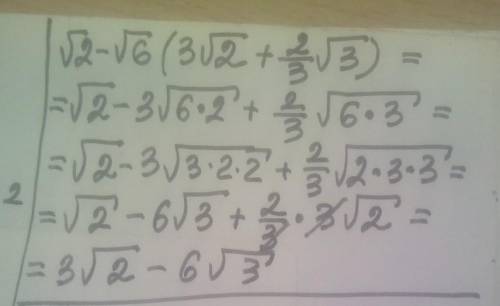 √2-√6(3√2+2/3√3)=
=√2-3√6·2+2/3√6·3=
=√2-3√3·2·2+2/3√2·3·3=
2
=√2-6√3+2/3·3√2=
=3√2-6√3